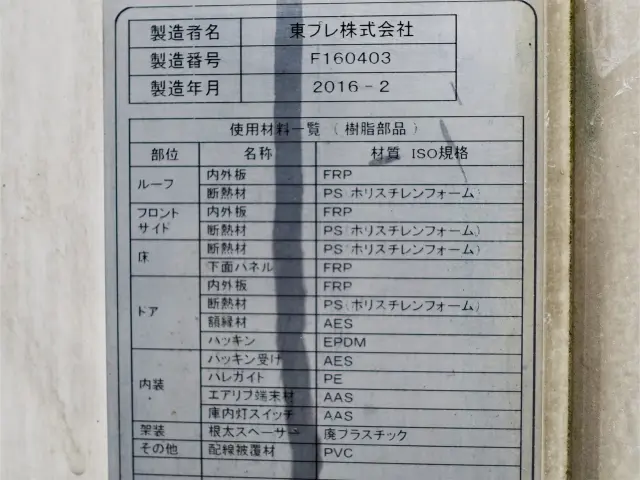 製造者名 東プレ株式会社
製造番号 F160403
製造年月 2016-2
使用材料一覧(樹脂部品)
部位 名称 材質 ISO規格
ルーフ 内外板 FRP
断熱材 PS(ポリスチレンフォーム)
フロント サイド 内外板 FRP
断熱材 PS(ポリスチレンフォーム)
床 断熱材 PS(ポリスチレンフォーム)
下面パネル FRP
ドア 内外板 FRP
断熱材 PS(ポリスチレンフォーム)
額縁材 AES
パッキン EPDM
内装 パッキン受け AES
パレガイト PE
エアリブ端末材 AAS
庫内灯スイッチ AAS
架装 根太スペーサー 廃プラスチック
その他 配線被覆材 PVC